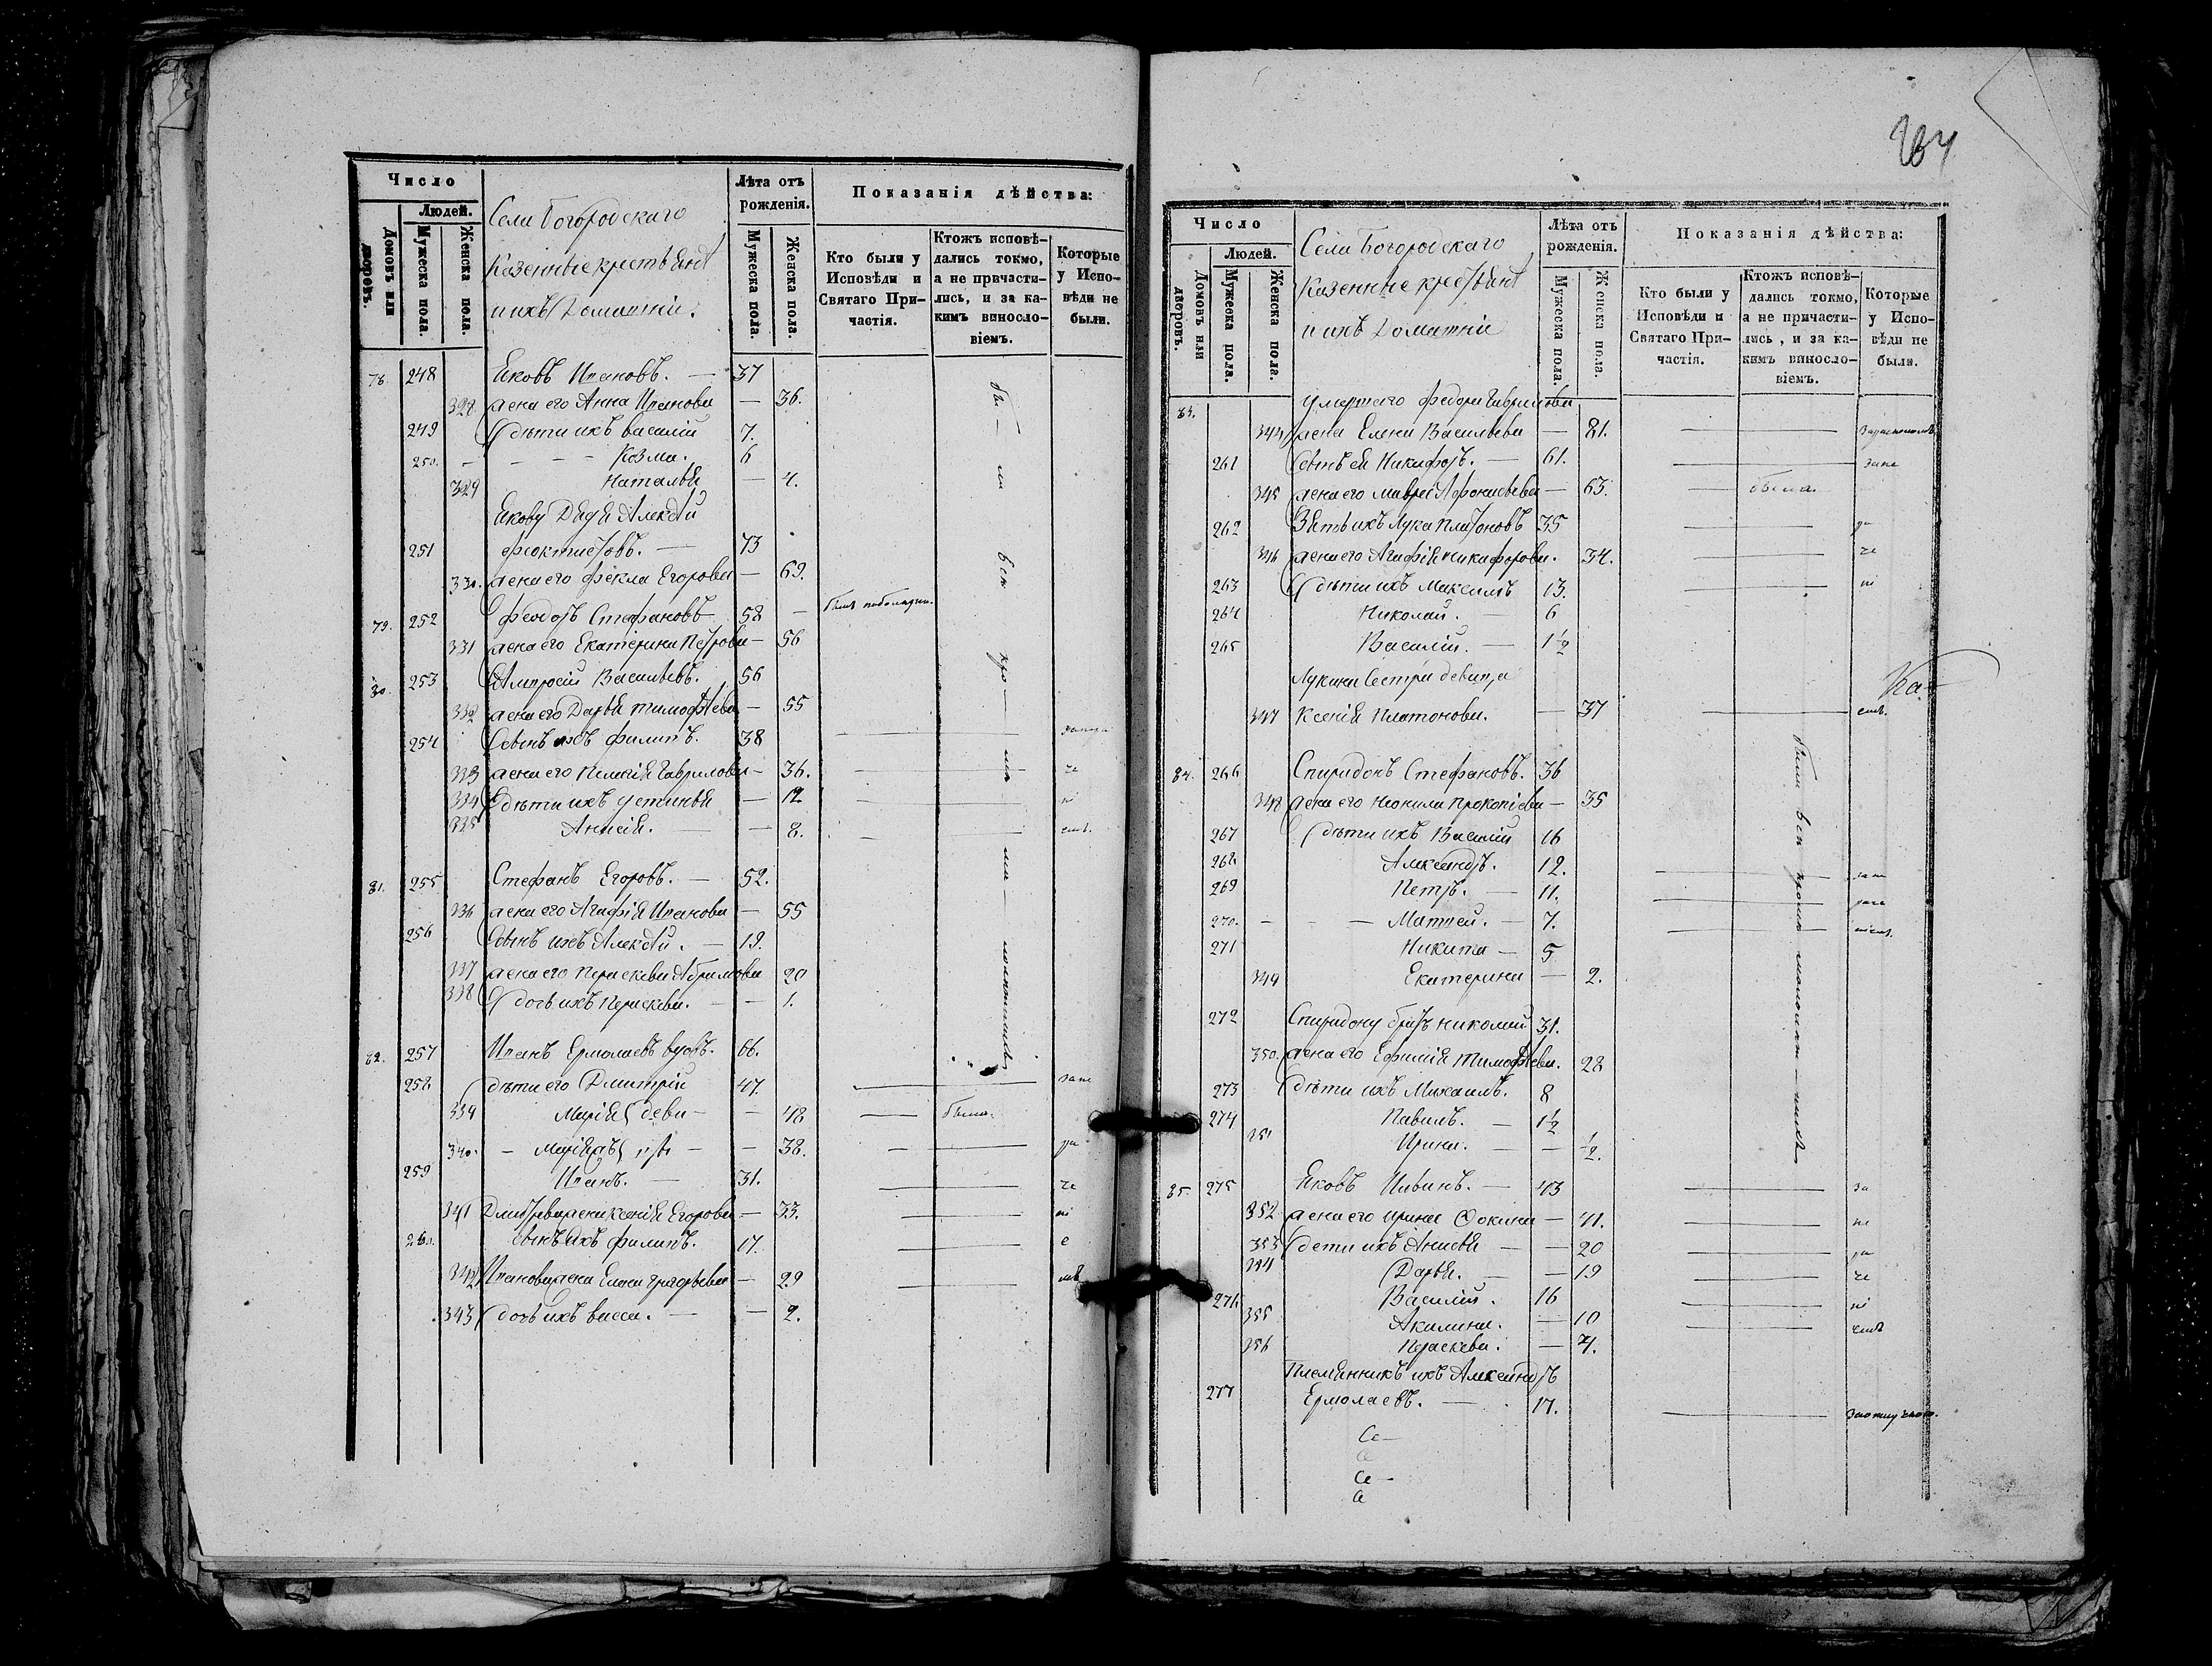 Число
Людей.
Домовъ или дворовъ.
Мужеска пола.
Женска пола.
Села Богородскаго
Казенные крестьяне
и ихъ домашніи.
Лѣта отъ
рожденія.
Мужеска пола.
Женска пола.
Показанія дѣйства:
Кто были у
Исповѣди и
Святаго При-
частія.
Ктожъ исповѣ-
дались токмо,
а не причасти-
лись, и за ка-
кимъ виносло-
віемъ.
Которые
у Испо-
вѣди не
были.
78. 248 Яковъ Ивановъ. — 37
328 жена его Анна Иванова — 36.
249 дѣти ихъ Василій 7.
250. Козма. 6
329 Наталья — 4.
Якову дядя Алексѣй
251 Феоктистовъ. — 73
330. жена его Фекла Егорова — 69.
79. 252 Феодоръ Стефановъ 58 —
331 жена его Екатерина Петрова — 56
80. 253 Амвросій Васильевъ. 56
332 жена его Дарья Тимофѣева — 55
254 Сынъ ихъ Филипъ. 38
333 жена его Пелагія Гаврилова — 36.
334 дѣти ихъ Устинья — 12
335 Анисія. — 8.
81. 255 Стефанъ Егоровъ. — 52.
336 жена его Агафія Иванова — 55
256 Сынъ ихъ Алексѣй. — 19.
337 жена его Параскева Абрамова 20
338 дочь ихъ Параскева. — — 1.
82. 257 Иванъ Ермолаевъ вдовъ. 66.
258 дѣти его Дмитрій 47.
339 Марія деви — — 48 была.
340. — Марія — — 38.
259 Иванъ. — 31.
341 Дмитрева жена Ксенія Егорова — 33.
260. Сынъ ихъ Филипъ. 17.
342 Иванова жена Елена Григорьева — 29
343 дочь ихъ Васса. — — 2.
264
Число
Людей.
Домовъ или дворовъ.
Мужеска пола.
Женска пола.
Села Богородскаго
Казенные крестьяне
и ихъ домашніи
Лѣта отъ
рожденія.
Мужеска пола.
Женска пола.
Показанія дѣйства:
Кто были у
Исповѣди и
Святаго При-
частія.
Ктожъ исповѣ-
дались токмо,
а не причасти-
лись, и за ка-
кимъ виносло-
віемъ.
Которые
у Испо-
вѣди не
были.
83. умершаго Федора Гаврилова
344 жена Елена Васильева — 81.
261 Сынъ ея Никифоръ. — 61.
345 жена его Мавра Афонасьева — 63. — была.
262 Зять ихъ Лука Платоновъ 35
346 жена его Агафія Никифорова. 34.
263 дѣти ихъ Максимъ 13.
264 Николай. — 6
265 Василій. — 1½
Лукина Сестра девица
347 Ксенія Платонова. — 37
84. 266 Спиридонъ Стефановъ. 36
348 жена его Неонила Прокопіева — 35
267 дѣти ихъ Василій 16
268 Александръ. 12.
269 Петръ. — 11.
270. — — — Матвей. — 7.
271 Никита — 5
349 Екатерина — 2.
были вси кромѣ
272 Спиридону братъ Николай 31.
350. жена его Ефимія Тимофѣева. 28
273 дѣти ихъ Михаилъ. 8
274 Павилъ. — 1½
351 Ирина. — — ½.
85. 275 Яковъ Ильинъ. — 43
352 жена его Ирина Фокина — 41.
353 дети ихъ Анисья — — 20
354 Дарья. — — 19
276 Василій. 16
355 Акилина. — 10
356 Параскева. — 4.
Племянникъ ихъ Александръ
277 Ермолаевъ. — 17.